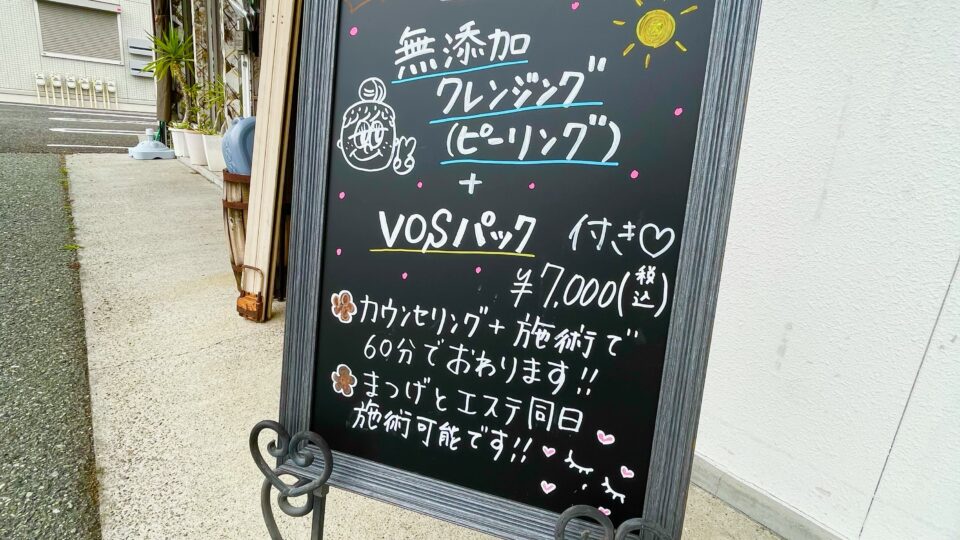 無添加
クレンジング
(ピーリング)
+
VOSパック 付き♡
¥7,000(税込)
カウンセリング+施術で
60分でおわります!!
まつげとエステ同日
施術可能です!!